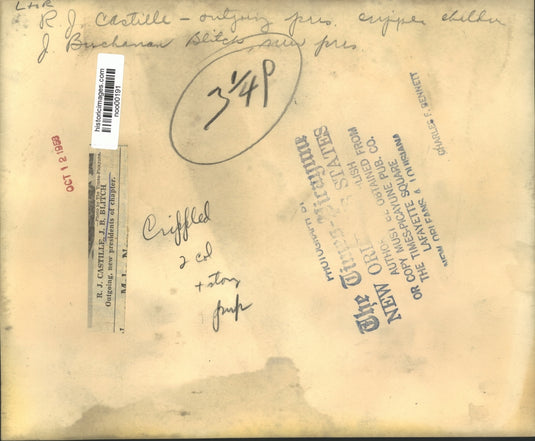 L to R
R. J. Castille - outgoing pres. cripper childr
J. Buchanan Blitch, new pres.
3 1/4 P
historicimages.com
noo00191
OCT 12 1953
R. J. CASTILLE, J. B. BLITCH
Outgoing, new presidents of chapter.
Crippled
2 col
+ story
PHOTOGRAPH BY
The Times-Picayune
NEW ORLEANS STATES
OR COPY MUST BE OBTAINED FROM
THE TIMES-PICAYUNE PUB. CO.
LAFAYETTE SQUARE
NEW ORLEANS, LOUISIANA
CHARLES F. BENNETT